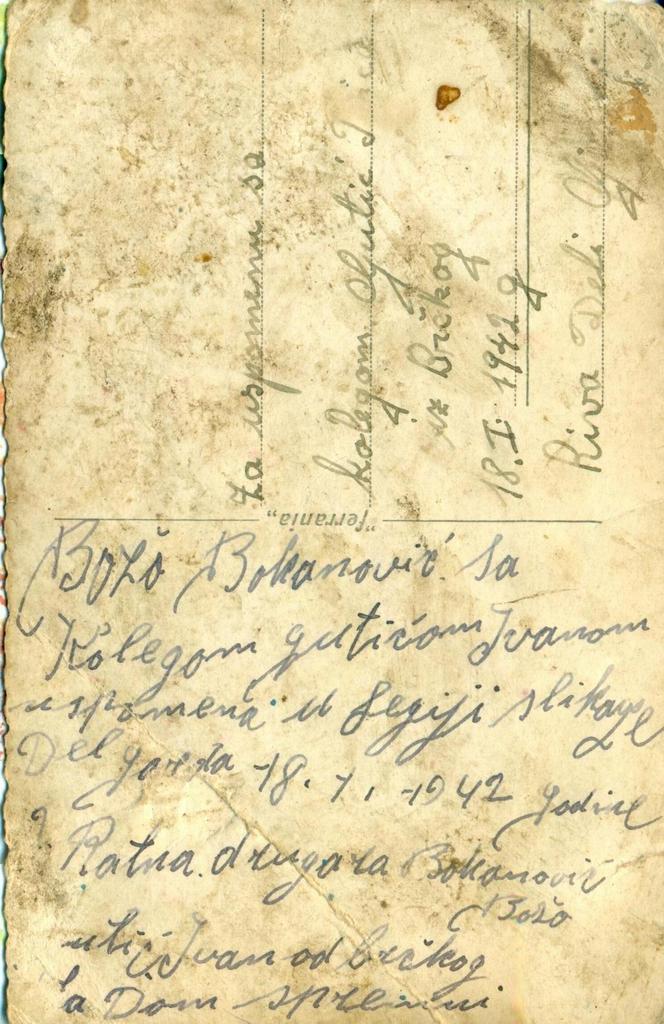 Za uspomenu sa
kolegom Gutić
iz Brčkog
18.I. 1942 g
Riva Deli
"ferrania"
Božo Bokanović sa
Kolegom gutićom Ivanom
uspomena u legiji
Del garda 18. 1. 1942 godine
Ratna drugara Bokanović
Božo
utić Ivan od brčkog
a Dom spremni